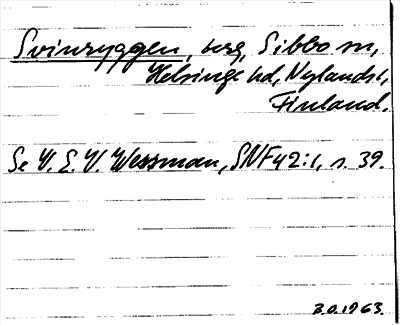 Svinryggen, berg, Sibbo sn,
Helsinge hd, Nylands l,
Finland.
Se V. E. V. Wessman, SNF 42:1, s. 39.
1963.